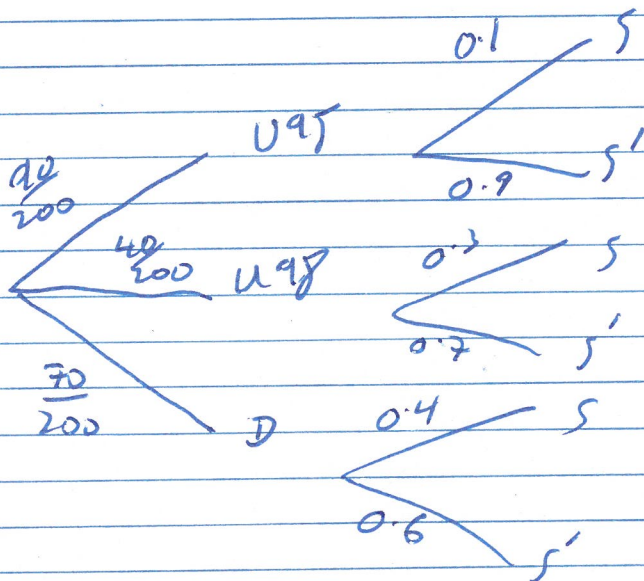 0.1 S
U95
90/200
0.9 S'
40/200 U98
0.3 S
0.7 S'
70/200 D
0.4 S
0.6 S'